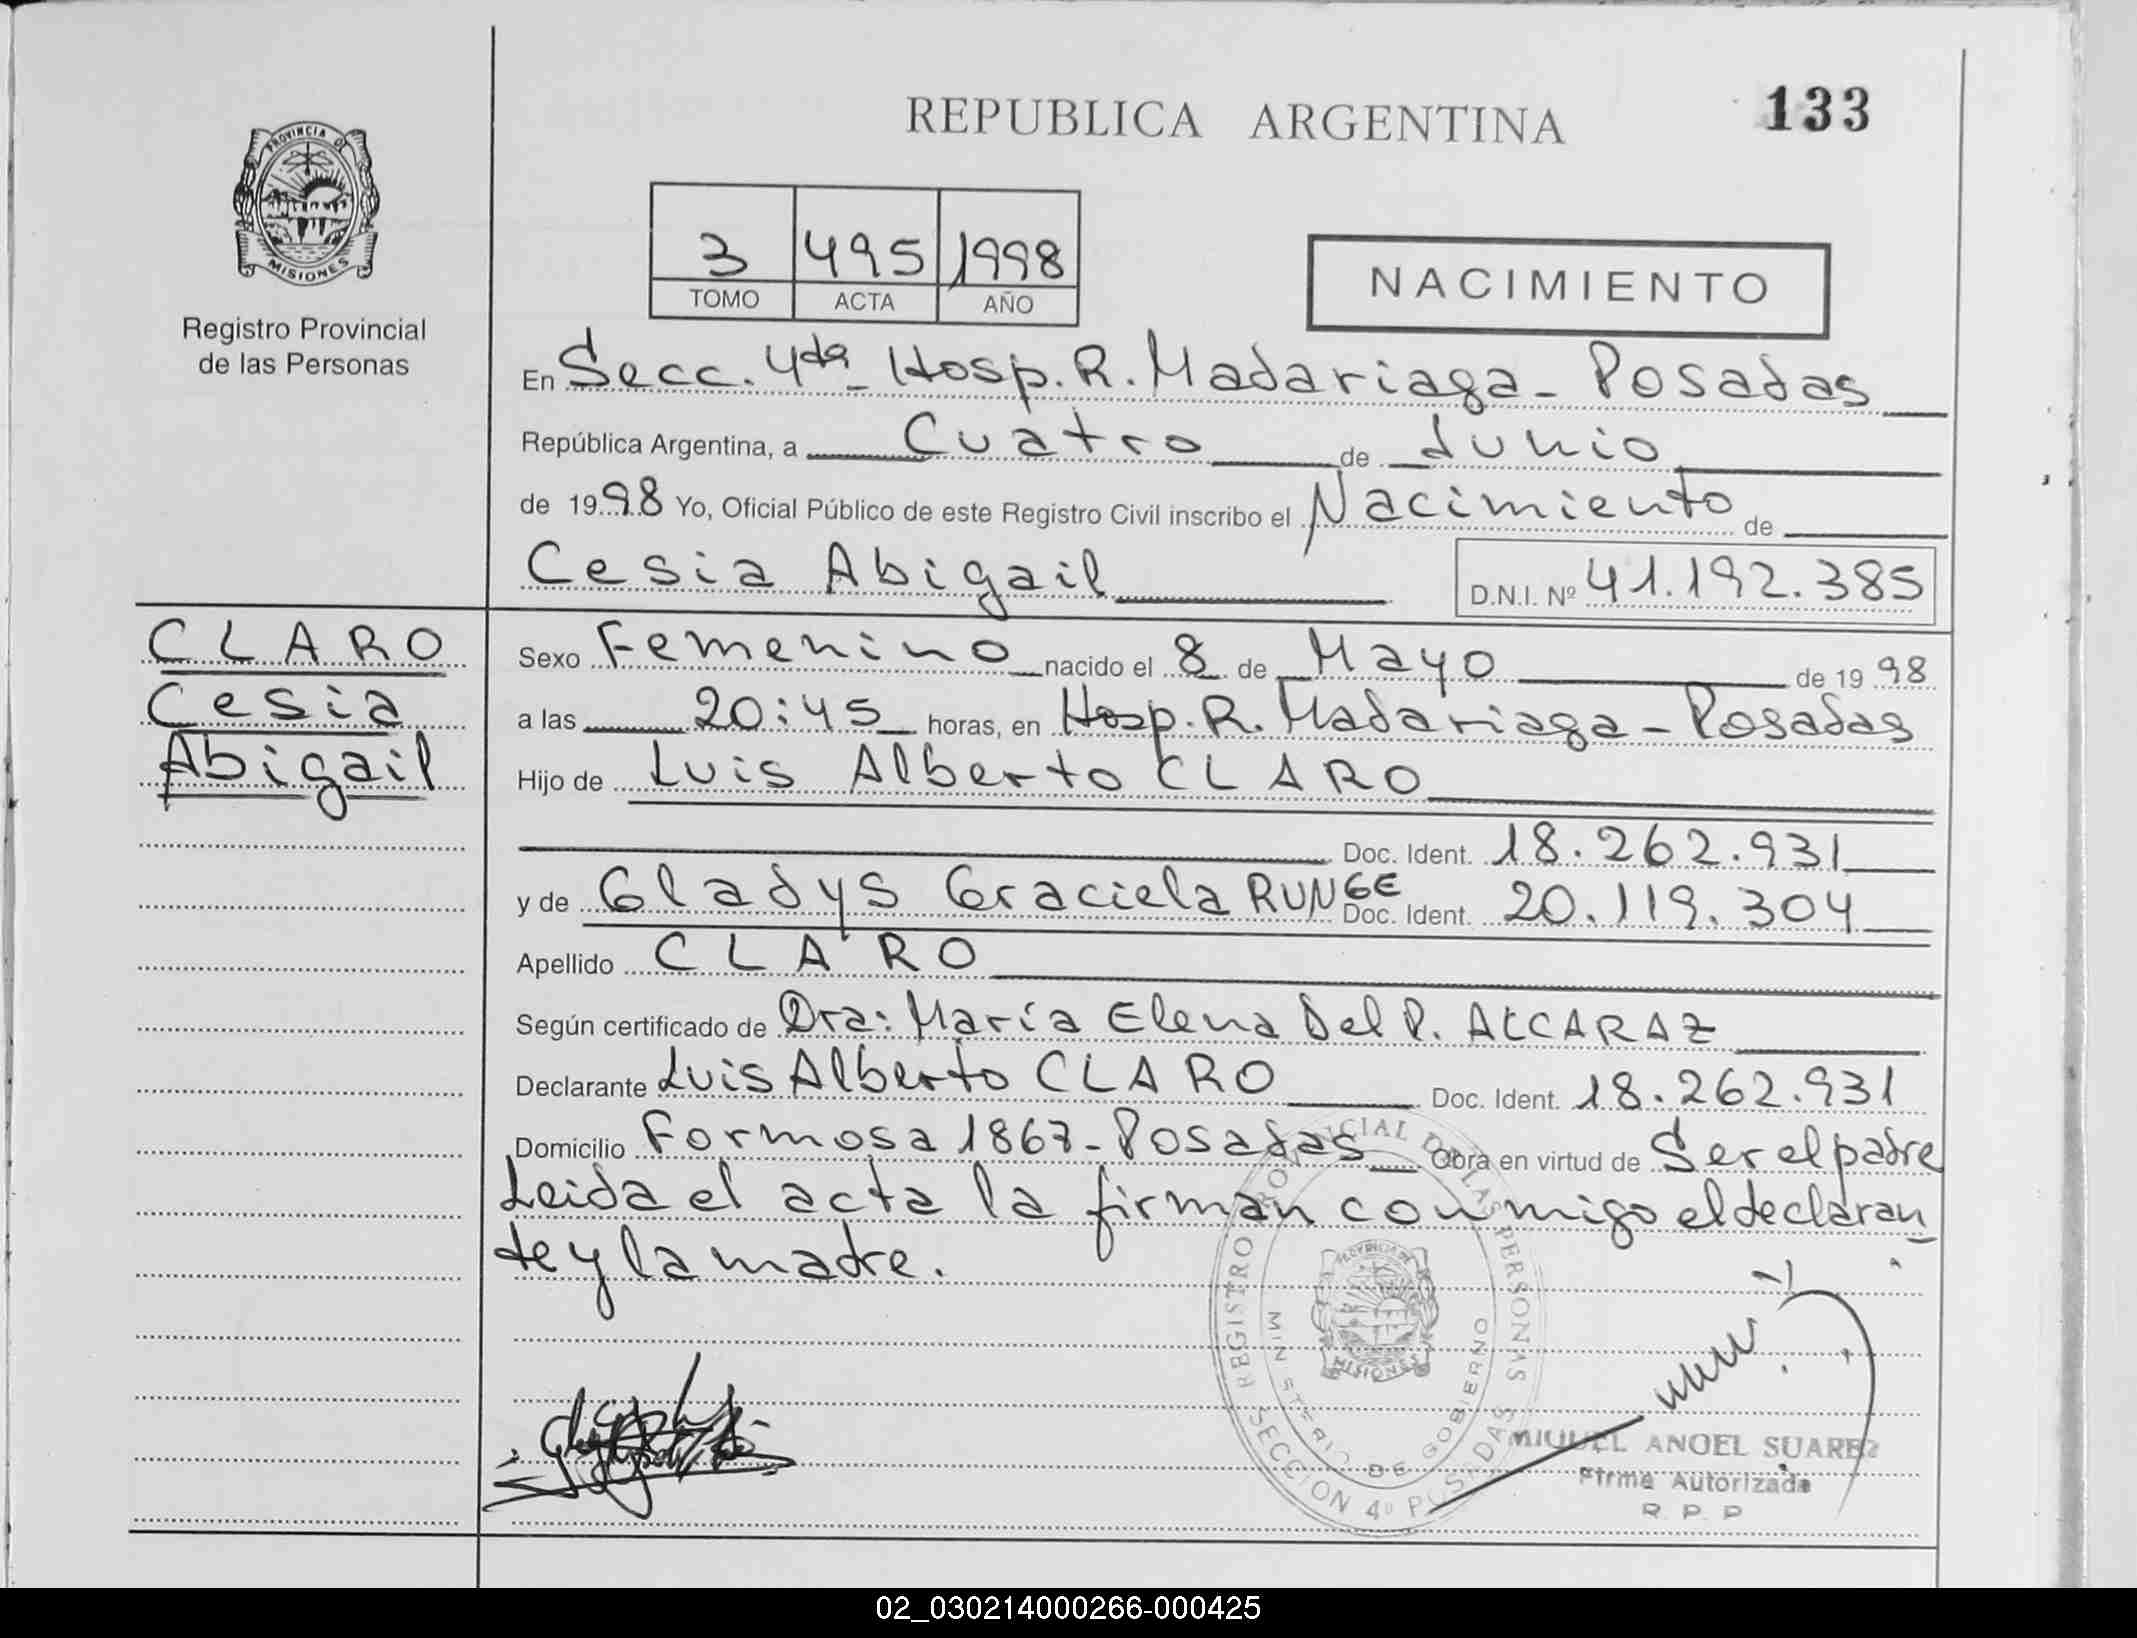 REPUBLICA ARGENTINA
133
PROVINCIA DE
MISIONES
Registro Provincial
de las Personas
3 495 1998
TOMO ACTA AÑO
NACIMIENTO
En Secc. 4ta - Hosp. R. Madariaga - Posadas
República Argentina, a Cuatro de Junio
de 1998 Yo, Oficial Público de este Registro Civil inscribo el Nacimiento de
Cesia Abigail D.N.I. Nº 41.192.385
CLARO
Cesia
Abigail
Sexo Femenino nacido el 8 de Mayo de 1998
a las 20:45 horas, en Hosp. R. Madariaga - Posadas
Hijo de Luis Alberto CLARO
Doc. Ident. 18.262.931
y de Gladys Graciela RUNGE Doc. Ident. 20.119.304
Apellido CLARO
Según certificado de Dra: María Elena Del P. ALCARAZ
Declarante Luis Alberto CLARO Doc. Ident. 18.262.931
Domicilio Formosa 1867 - Posadas Obra en virtud de Ser el padre
Leida el acta la firman conmigo el declaran
te y la madre.
REGISTRO PROVINCIAL DE LAS PERSONAS
MINISTERIO DE GOBIERNO
MISIONES
SECCION 4º POSADAS
MIGUEL ANGEL SUAREZ
Firma Autorizada
R. P. P
02_030214000266-000425